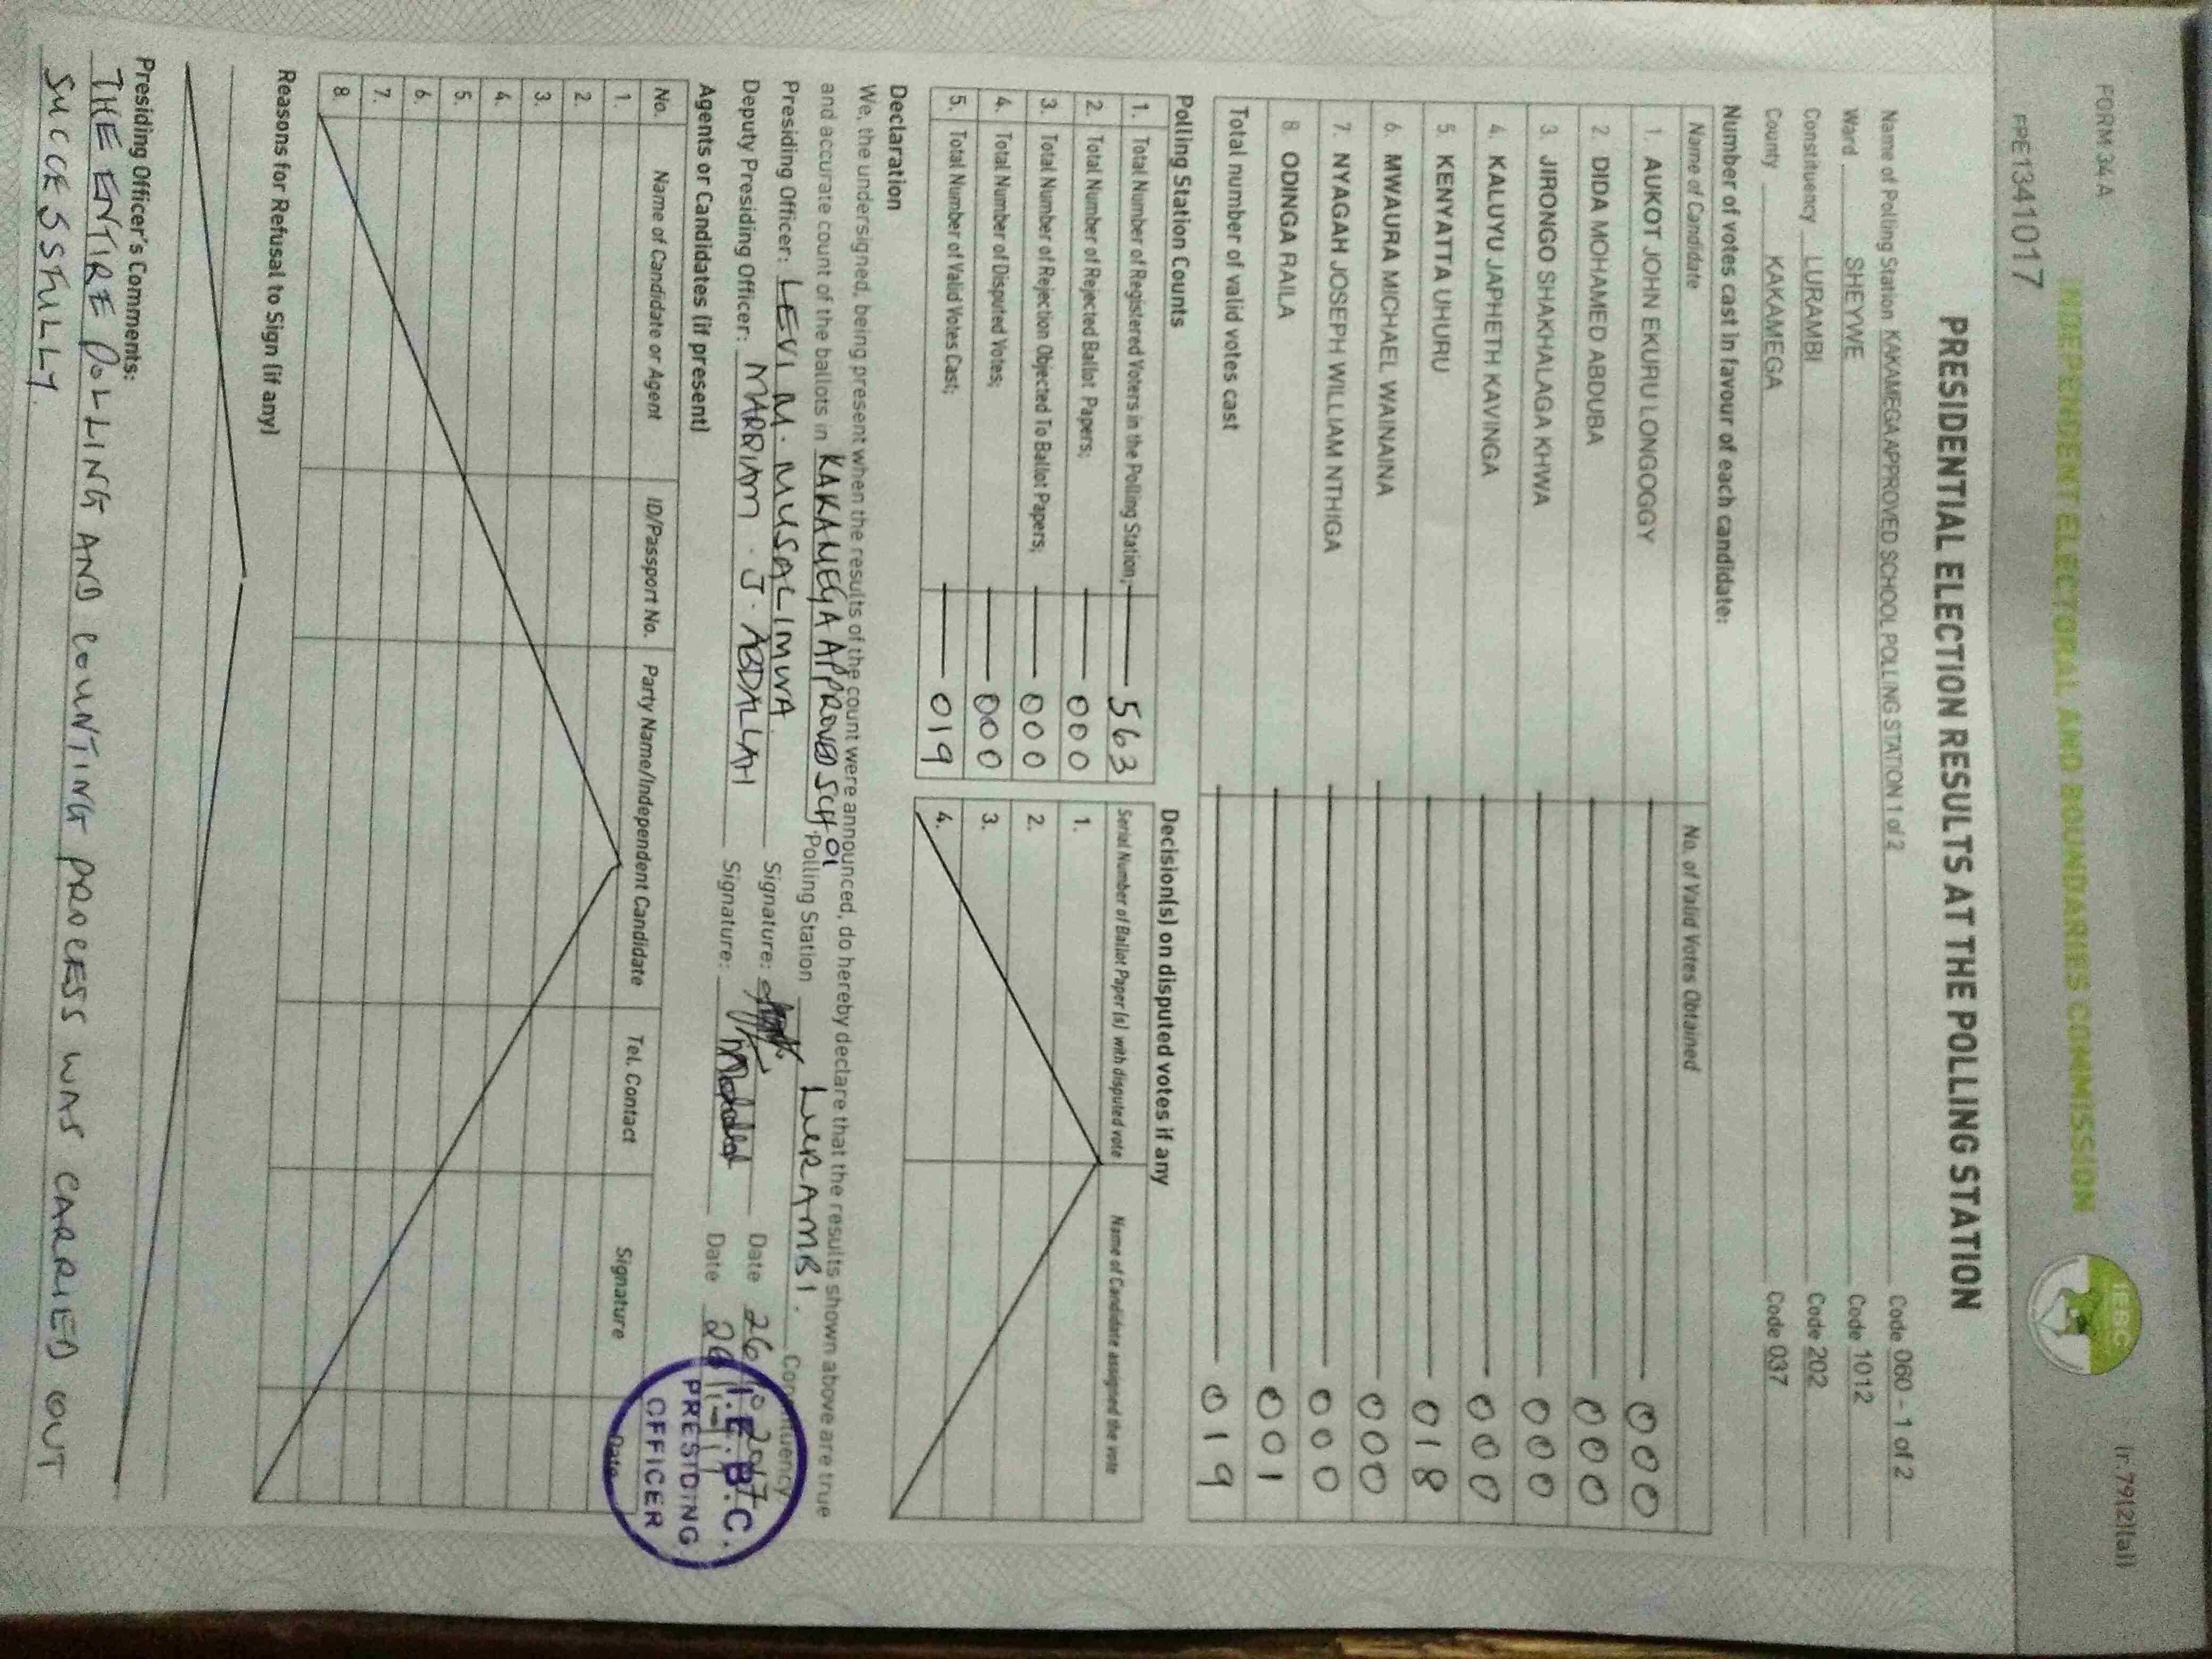 FORM 34 A
(r.79(2)(a))
INDEPENDENT ELECTORAL AND BOUNDARIES COMMISSION
IEBC
FPE1341017
PRESIDENTIAL ELECTION RESULTS AT THE POLLING STATION
Name of Polling Station KAKAMEGA APPROVED SCHOOL POLLING STATION 1 of 2 Code 060 - 1 of 2
Ward SHEYWE Code 1012
Constituency LURAMBI Code 202
County KAKAMEGA Code 037
Number of votes cast in favour of each candidate:
Name of Candidate No. of Valid Votes Obtained
1. AUKOT JOHN EKURU LONGOGGY 000
2. DIDA MOHAMED ABDUBA 000
3. JIRONGO SHAKHALAGA KHWA 000
4. KALUYU JAPHETH KAVINGA 000
5. KENYATTA UHURU 018
6. MWAURA MICHAEL WAINAINA 000
7. NYAGAH JOSEPH WILLIAM NTHIGA 000
8 ODINGA RAILA 001
Total number of valid votes cast 019
Polling Station Counts
1. Total Number of Registered Voters in the Polling Station; 563
2. Total Number of Rejected Ballot Papers; 000
3. Total Number of Rejection Objected To Ballot Papers; 000
4. Total Number of Disputed Votes; 000
5. Total Number of Valid Votes Cast; 019
Decision(s) on disputed votes if any
Serial Number of Ballot Paper (s) with disputed vote Name of Candidate assigned the vote
1.
2.
3.
4.
Declaration
We, the undersigned, being present when the results of the count were announced, do hereby declare that the results shown above are true
and accurate count of the ballots in KAKAMEGA APPROVED SCH Polling Station LURAMBI. Constituency
Presiding Officer: LEVI M. MUSALIMWA Signature: Date 26
Deputy Presiding Officer: MARRIAM . J. ABDALLAH Signature: Date 26
I.E.B.C.
PRESIDING
OFFICER
Agents or Candidates (if present)
No. Name of Candidate or Agent ID/Passport No. Party Name/Independent Candidate Tel. Contact Signature Date
1.
2.
3.
4.
5.
6.
7.
8.
Reasons for Refusal to Sign (if any)
Presiding Officer's Comments:
THE ENTIRE POLLING AND COUNTING PROCESS WAS CARRIED OUT
SUCCESSFULLY.